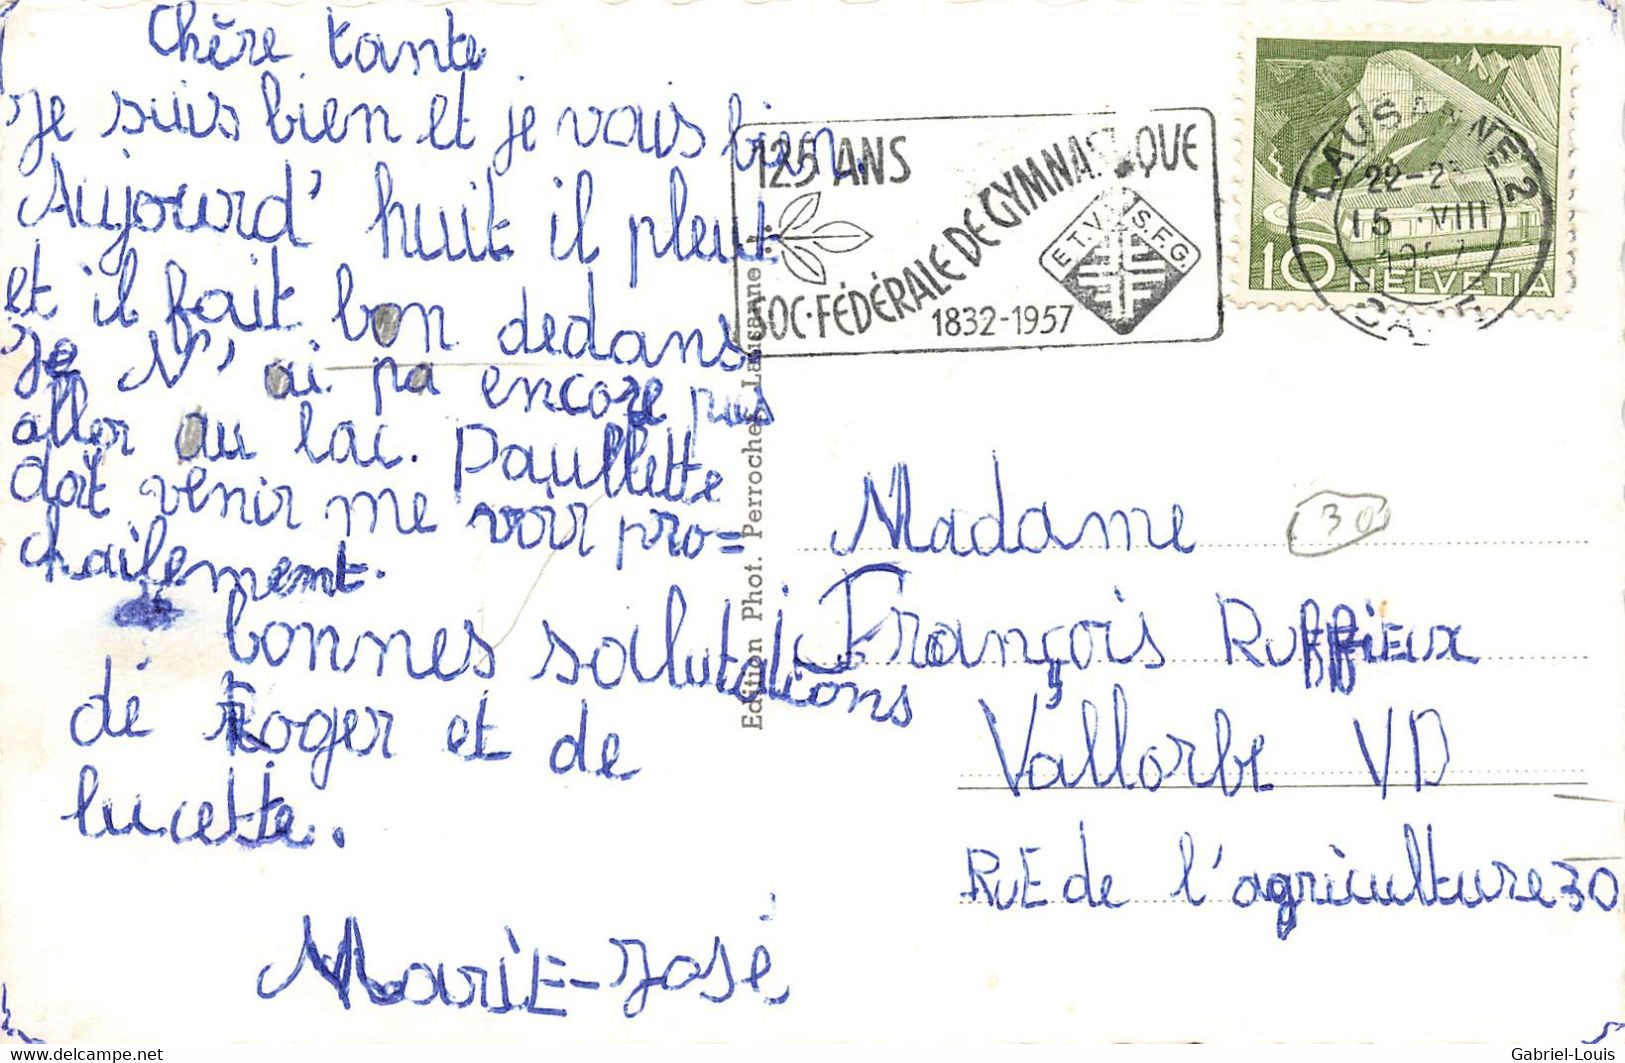 Chère tante
Je suis bien et je vais bien.
Aujourd' huit il pleut
et il fait bon dedans
Je N' ai pa encore pus
aller au lac. Paullette
doit venir me voir pro=
chailement.
bonnes salutations
de Roger et de
lucette.
Marie-José
Edition Phot. Perrochet Lausanne
125 ANS
SOC. FÉDÉRALE DE GYMNASTIQUE
1832-1957
E.T.V. S.F.G.
LAUSANNE 2
22-2
15 VIII
1957
10 HELVETIA
Madame
30
François RuFFiEux
Vallorbe VD
RuE de l'agriculture 30
delcampe.net
Gabriel-Louis